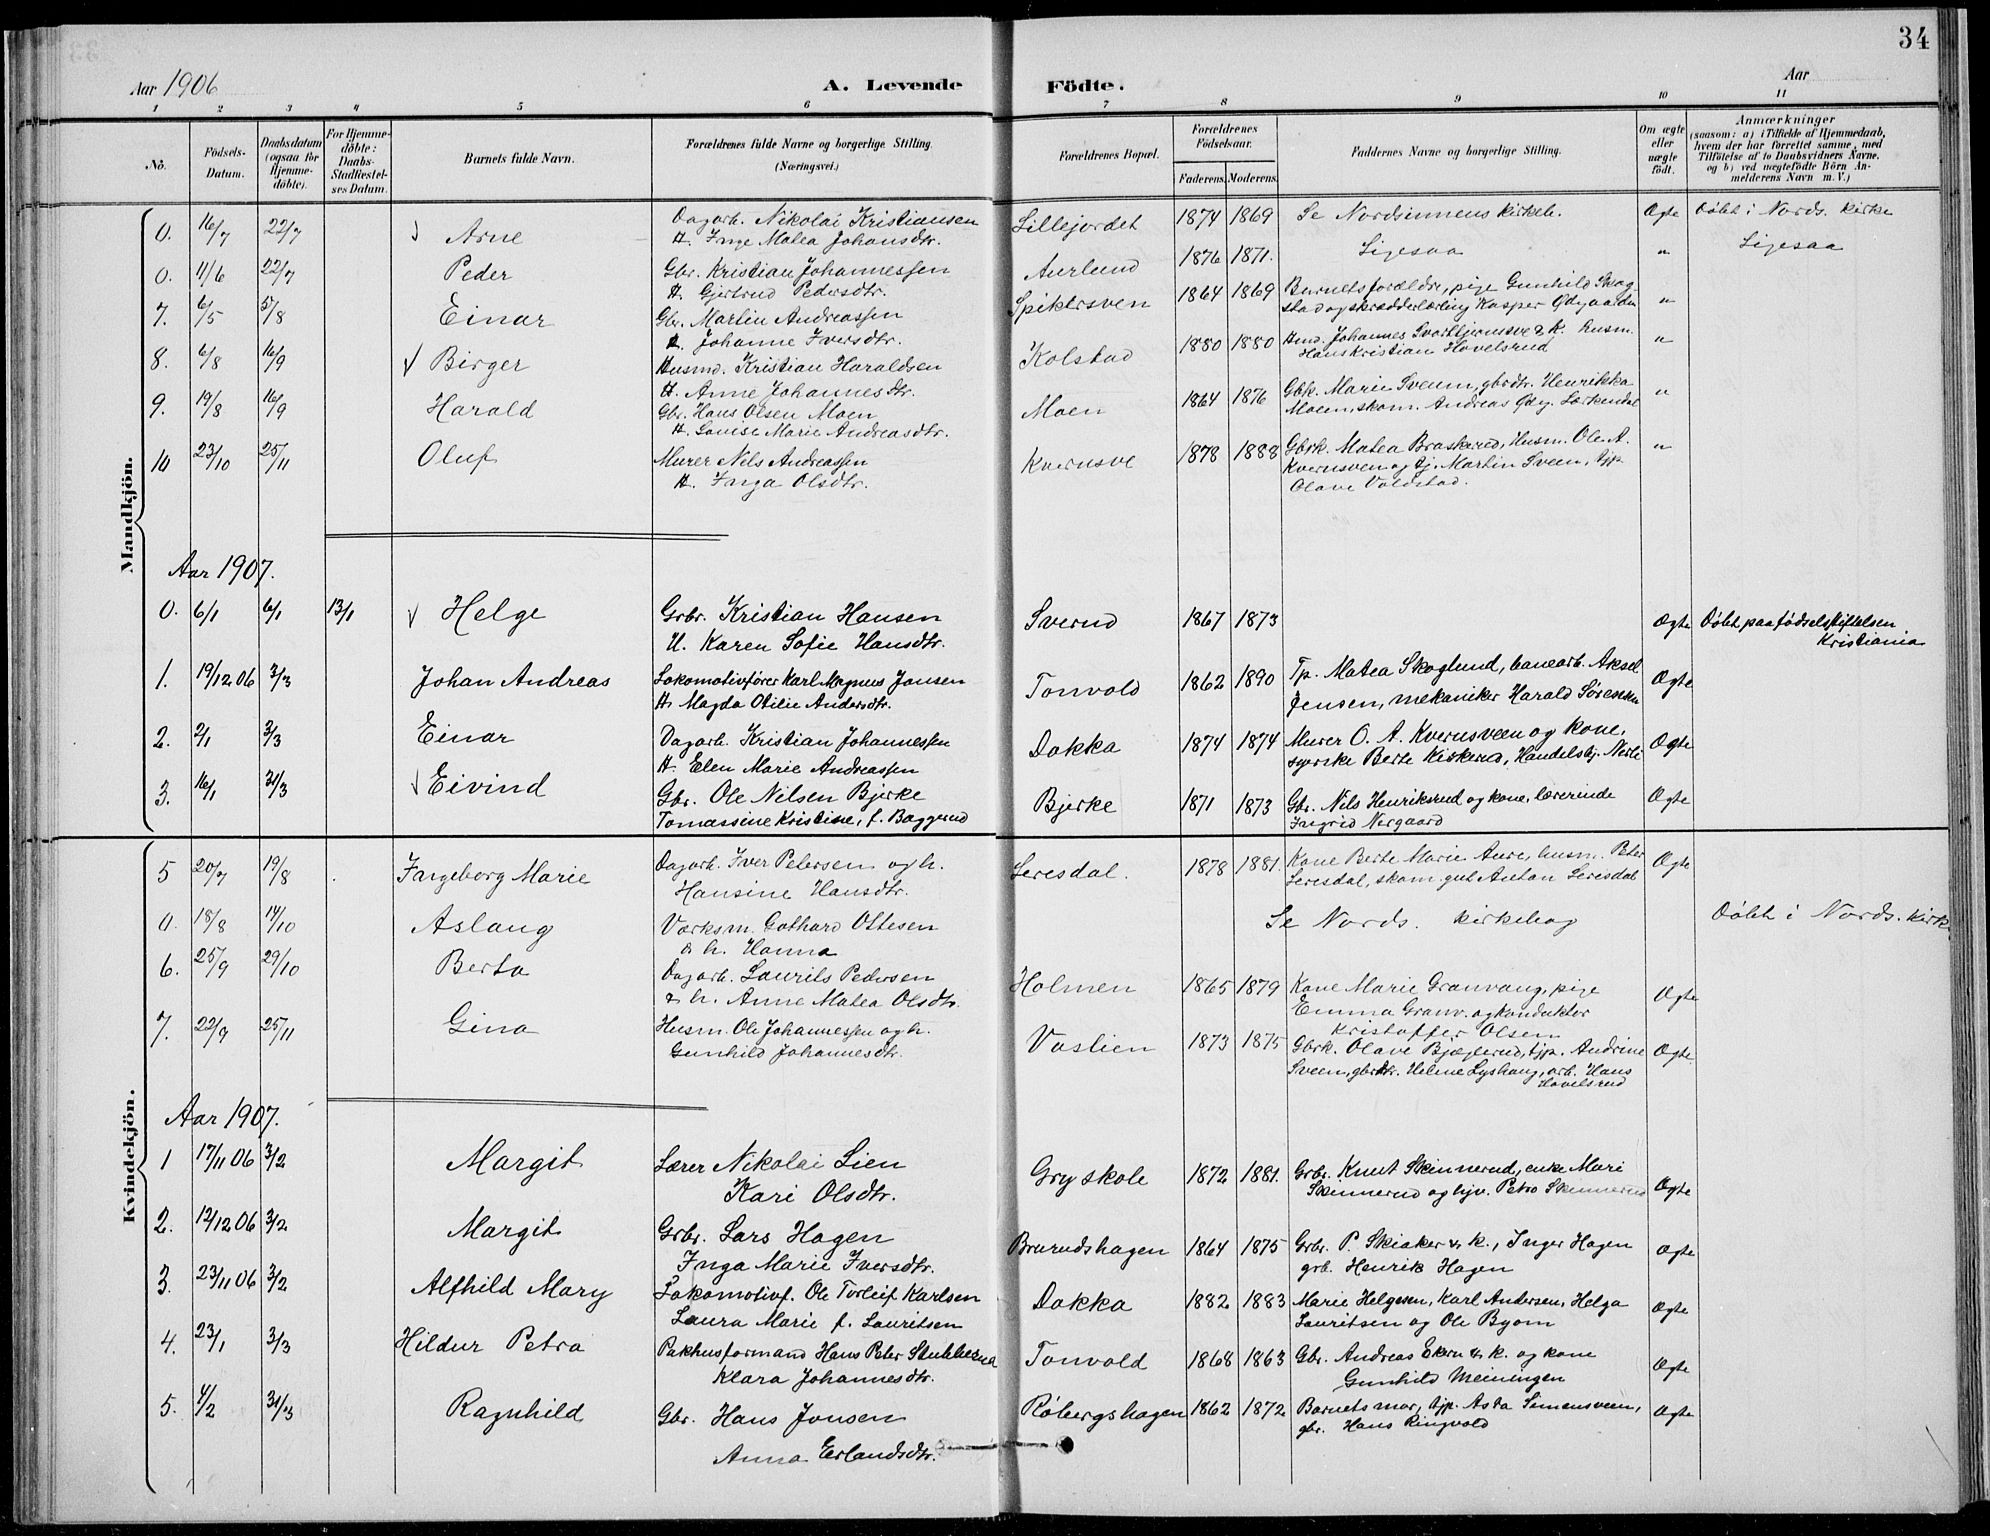 34
Aar 1906
A. Levende Födte.
Aar
1 2 3 4 5 6 7 8 9 10 11
No.
Födsels-Datum.
Daabsdatum (ogsaa for Hjemme-döbte).
For Hjemme-döbte: Daabs-Stadfæstel-ses Datum.
Barnets fulde Navn.
Forældrenes fulde Navne og borgerlige Stilling. (Næringsvei.)
Forældrenes Bopæl.
Forældrenes Födselsaar.
Faderens. Moderens.
Faddernes Navne og borgerlige Stilling.
Om ægte eller uægte födt.
Anmærkninger (saasom: a) i Tilfælde af Hjemmedaab, hvem der har forrettet samme, med Tilföielse af to Daabsvidners Navne, og b) ved uægtefödte Börn An-melderens Navn m. V.)
Mandkjön.
0. 16/7 22/7 Arne Dagarb. Nikolai Kristiansen Lillejordet 1874 1869 Se Nordsinnens kirkeb. Ægte Döbt i Nords. kirke
H. Inge Malea Johansdtr.
0. 11/6 22/7 Peder Gbr. Kristian Johannessen Aurlund 1876 1871. Ligesaa " Ligesaa
H. Gjertrud Pedersdtr.
7. 6/5 5/8 Einar Gbr. Martin Andreassen Spiktersven 1864 1869 Barnets forældre, pige Gunhild Skog-
H. Johanne Iversdtr. stad og skrædderlærling Kasper Ødegaarden "
8. 6/8 16/9 Birger Husmd. Kristian Haraldsen Kolstad 1880 1880 Hmd. Johannes Svarttjernsve & k. husm.
H. Anne Johannesdtr. Hans Kristian Hovelsrud "
9. 19/8 16/9 Harald Gbr. Hans Olsen Moen Moen 1864 1876 Gbk. Marie Sveum, gbrdtr. Henrikka
H. Lovise Marie Andreasdtr. Moen, skom. Andreas Ødeg. "
10 23/10 25/11 Oluf Murer Nels Andreassen Kvernsve 1878 1888 Gbrk. Matea Braskerud, Husm. Ole A.
H. Inga Olsdtr. Kvernsveen og tj. Martin Sveen, tjp. "
Olave Voldstad.
Aar 1907.
0. 6/1 6/1 13/1 Helge Grbr. Kristian Hansen Sverud 1867 1873 Ægte Döbt paa födselstiftelsen
H. Karen Sofie Hansdtr. Kristiania
1. 19/12 06 3/3 Johan Andreas Lokomotivförer Karl Magnus Jonsen Tonvold 1862 1890 Tp. Matea Skoglund, banearb. Aksel Ægte
H. Magda Otilie Andersdtr. Jensen, mekaniker Harald Sørensen
2. 2/1 3/3 Einar Dagarb. Kristian Johannessen Dokka 1874 1874 Murer O. A. Kvernsveen og kone, Ægte
H. Elen Marie Andreassen syerske Berte Kiskerud, Handelsbj. Nerli
3. 16/1 31/3 Eivind Gbr. Ole Nilsen Bjerke Bjerke 1871 1873 Gbr. Nils Henriksrud og kone, lærerinde Ægte
Tomassine Kristine, f. Baggerud Ingrid Nergaard
Kvindekjön.
5 20/7 19/8 Ingeborg Marie Dagarb. Iver Petersen og h. Leresdal. 1878 1881. Kone Berte Marie Aure, husm. Peter Ægte
Hansine Hansdtr. Leresdal, skom. gut Anton Leresdal
0. 18/8 14/10 Aslaug Værksm. Gothard Ottesen Se Nords. kirkebog Döbt i Nords. kirke
& h. Hanna
6. 25/9 29/10 Berta Dagarb. Laurits Pedersen Holmen 1865 1879 Kone Marie Granvang, pige Ægte
& h. Anne Matea Olsdtr. Emma Granv. og konduktør
Kristoffer Olsen
7. 22/9 25/11 Gina Husm. Ole Johannessen og h. Vaslien 1873 1875 Gbrk. Olave Bjæglerud, tjp. Andrine Ægte
Gunhild Johannesdtr. Sveen, gbrdtr. Helene Lyshaug, arb. Hans
Hovelsrud
Aar 1907.
1 17/11 06 3/2 Margit Lærer Nikolai Lien Gry skole 1872 1881. Grbr. Knut Skinnerud, enke Mari
Kari Olsdtr. Skinnerud og hjv. Petra Skinnerud Ægte
2. 12/12 06 3/2 Margit Grbr. Lars Hagen Bruruds hagen 1864 1875 Grbr. P. Skiaker & k., Inger Hagen Ægte
Inga Marie Iversdtr. grb. Henrik Hagen
3. 23/11 06 3/2 Alfhild Mary Lokomotivf. Ole Torleif Karlsen Dokka 1882 1883 Marie Helgesen, Karl Andersen, Helga Ægte
Laura Marie f. Lauritsen Lauritsen og Ole Byom
4. 23/1 3/3 Hildur Petra Pakhusformand Hans Peter Stubberud Tonvold 1868 1863 Gbr. Andreas Ekern & k. og kone Ægte
Klara Johannesdtr. Gunhild Meiningen
5. 4/2 31/3 Ragnhild Gbr. Hans Jonsen Røbergshagen 1862 1872 Barnets mor, tjp. Asta Simensveen, Ægte
Anna Erlandsdtr. gbr. Hans Ringvold